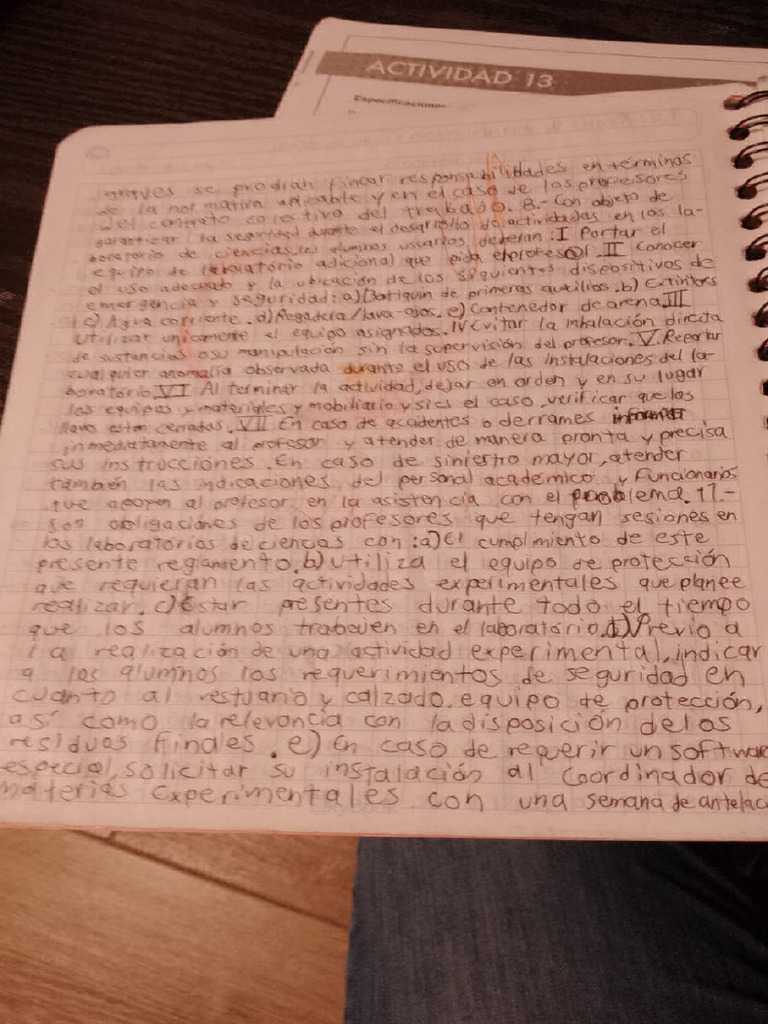 ACTIVIDAD 13
Especificaciones
graves se prodran fincar responsabilidades en términos
de la normativa aplicable y en el caso de los profesores
del contrato colectivo del trabajo. 8.- Con objeto de
garantizar la seguridad durante el desarrollo de actividades en los la-
boratorio de ciencias, los alumnos usuarios deberan: I Portar el
equipo de laboratorio adicional que pida el profesor. II Conocer
el uso adecuado y la ubicación de los siguientes dispositivos de
emergencia y seguridad: a) Botiquin de primeros auxilios. b) Extintores
c) Agua corriente. d) Regadera/lava-ojos. e) Contenedor de arena III
Utilizar unicamente el equipo asignados. IV Evitar la inhalación directa
de sustancias o su manipulación sin la supervisión del profesor. V. Reportar
cualquier anomalía observada durante el uso de las instalaciones del la-
boratorio VI Al terminar la actividad, dejar en orden y en su lugar
los equipos y materiales y mobiliario y si es el caso, verificar que las
llaves esten cerradas. VII En caso de accidentes o derrames informar
inmediatamente al profesor y atender de manera pronta y precisa
sus instrucciones. En caso de siniestro mayor, atender
también las indicaciones del personal académico y funcionarios
que apoyen al profesor en la asistencia con el problema. 17.-
Son obligaciones de los profesores que tengan sesiones en
los laboratorios de ciencias con: a) El cumplimiento de este
presente reglamento. b) Utiliza el equipo de protección
que requieran las actividades experimentales que planee
realizar. c) Estar presentes durante todo el tiempo
que los alumnos trabajen en el laboratorio. d) Previo a
la realización de una actividad experimental, indicar
a los alumnos los requerimientos de seguridad en
cuanto al vestuario y calzado. equipo de protección,
así como la relevancia con la disposición de los
residuos finales. e) En caso de requerir un software
especial, solicitar su instalación al Coordinador de
materias experimentales con una semana de antelac